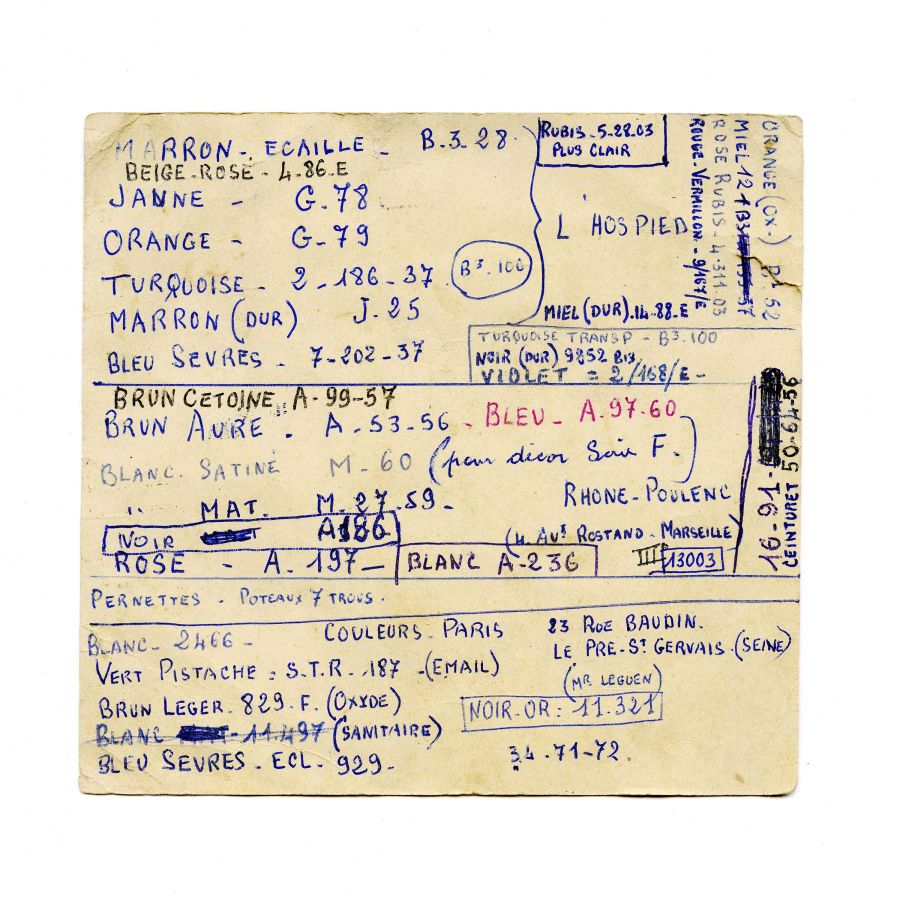 MARRON - ECAILLE - B.3.28
BEIGE-ROSE - 4.86.E
JANNE - G.78
ORANGE - G-79
TURQUOISE - 2-186-37
B³.100
MARRON (DUR) J.25
BLEU SEVRES - 7-202-37
RUBIS-5-28.03
PLUS CLAIR
L'HOSPIED
MIEL (DUR).14.88.E
ORANGE (OX-)
MIEL 121
ROSE RUBIS-4.311.03
ROUGE-VERMILLON - 9/167/E
TURQUOISE TRANSP - B³.100
NOIR (DUR) 9852 B13
VIOLET = 2/168/E-
BRUN CETOINE A-99-57
BRUN AURE. A.53-56 - BLEU - A.97-60
BLANC. SATINÉ M-60 (pour décor Série F.)
" MAT. M.27.59-
RHONE-POULENC
NOIR A186
(4. AVE ROSTAND - MARSEILLE)
ROSE - A. 197-
BLANC A-236
IIII 13003
16-91-
CEINTURET 50-64-56
PERNETTES - POTEAUX 7 TROUS.
BLANC - 2466 - COULEURS - PARIS
23 RUE BAUDIN.
LE PRE-ST GERVAIS.(SEINE)
VERT PISTACHE : S.T.R. 187 -(EMAIL)
(MR LEGUEN)
BRUN LEGER. 829.F. (OXYDE)
NOIR-OR: 11.321
BLANC - 11.497 (SANITAIRE)
BLEU SEVRES - ECL - 929-
34-71-72.